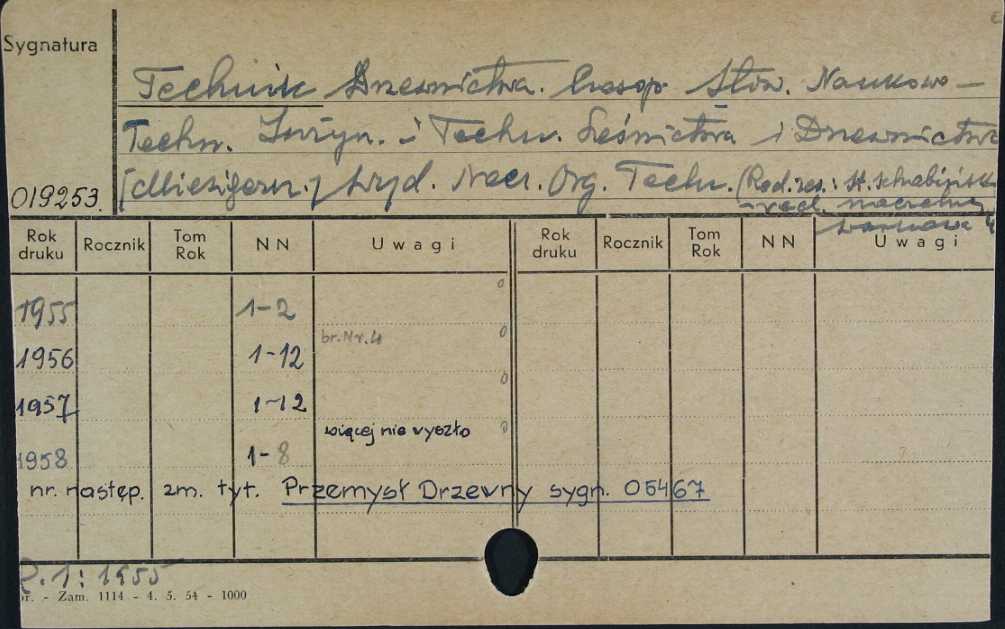 Sygnatura
Technik Drzewnictwa. Czasop. Stow. Naukowo-
Techn. Inżyn. i Techn. Leśnictwa i Drzewnictwa
019253. Wyd. Nacz. Org. Techn. (Red. zes.: St.
red. naczelny
Warszawa
Rok druku Rocznik Tom Rok NN Uwagi Rok druku Rocznik Tom Rok NN Uwagi
1955 1-2
br. Nr. 4
1956 1-12
1957 1-12
więcej nie wyszło
1958 1-8
nr. następ. zm. tyt. Przemysł Drzewny sygn. 05467
R. 1: 1955
- Zam. 1114 - 4. 5. 54 - 1000